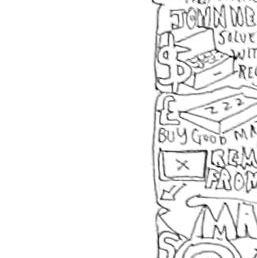 JOMN ME
$ SOLVE
WIT
REC
£ Z Z Z
BUY GOOD MA
X REM
FROM
MA